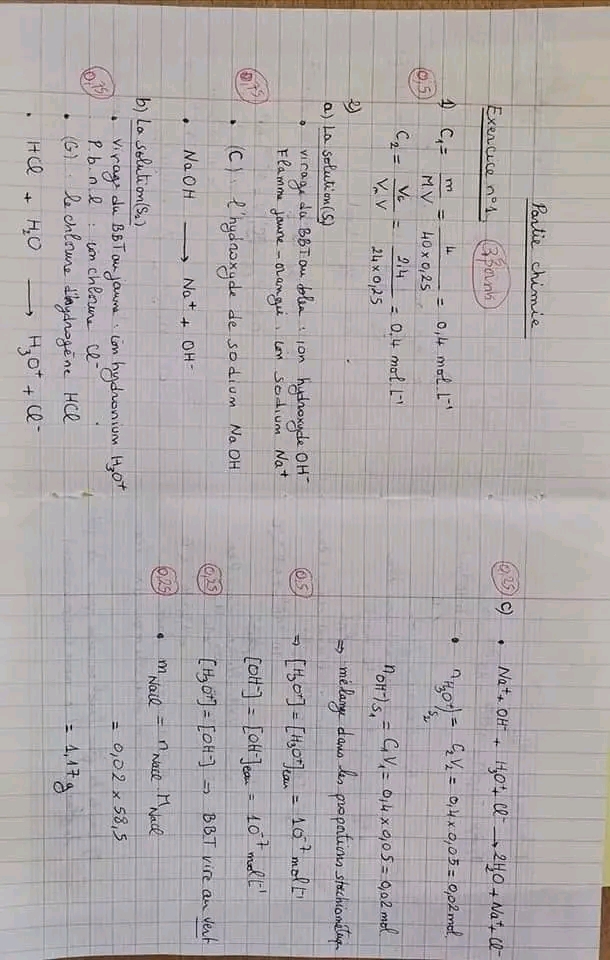 Partie chimie
Exercice n°1
1) C₁ = m / M.V = 4 / 40 × 0,25 = 0,4 mol.L⁻¹
0,5
C₂ = V_G / Vₘ.V = 2,4 / 24 × 0,25 = 0,4 mol.L⁻¹
2)
a) La solution (S₁)
• virage du BBT au bleu : ion hydroxyde OH⁻
Flamme jaune-orangé : ion sodium Na⁺
0,75
• (C) : l'hydroxyde de sodium NaOH
• NaOH → Na⁺ + OH⁻
b) La solution (S₂)
• virage du BBT au jaune : ion hydronium H₃O⁺
P.b.n.l : ion chlorure Cl⁻
0,75
• (G) : le chlorure d'hydrogène HCl
• HCl + H₂O → H₃O⁺ + Cl⁻
0,25
c) • Na⁺ + OH⁻ + H₃O⁺ + Cl⁻ → 2H₂O + Na⁺ + Cl⁻
• n(H₃O⁺)S₂ = C₂V₂ = 0,4 × 0,05 = 0,02 mol.
n(OH⁻)S₁ = C₁V₁ = 0,4 × 0,05 = 0,02 mol
⇒ mélange dans les proportions stœchiométriques
0,5
⇒ [H₃O⁺] = [H₃O⁺]eau = 10⁻⁷ mol L⁻¹
[OH⁻] = [OH⁻]eau = 10⁻⁷ mol L⁻¹
0,25
[H₃O⁺] = [OH⁻] ⇒ BBT vire au vert
0,25
• m NaCl = n NaCl . M NaCl
= 0,02 × 58,5
= 1,17 g